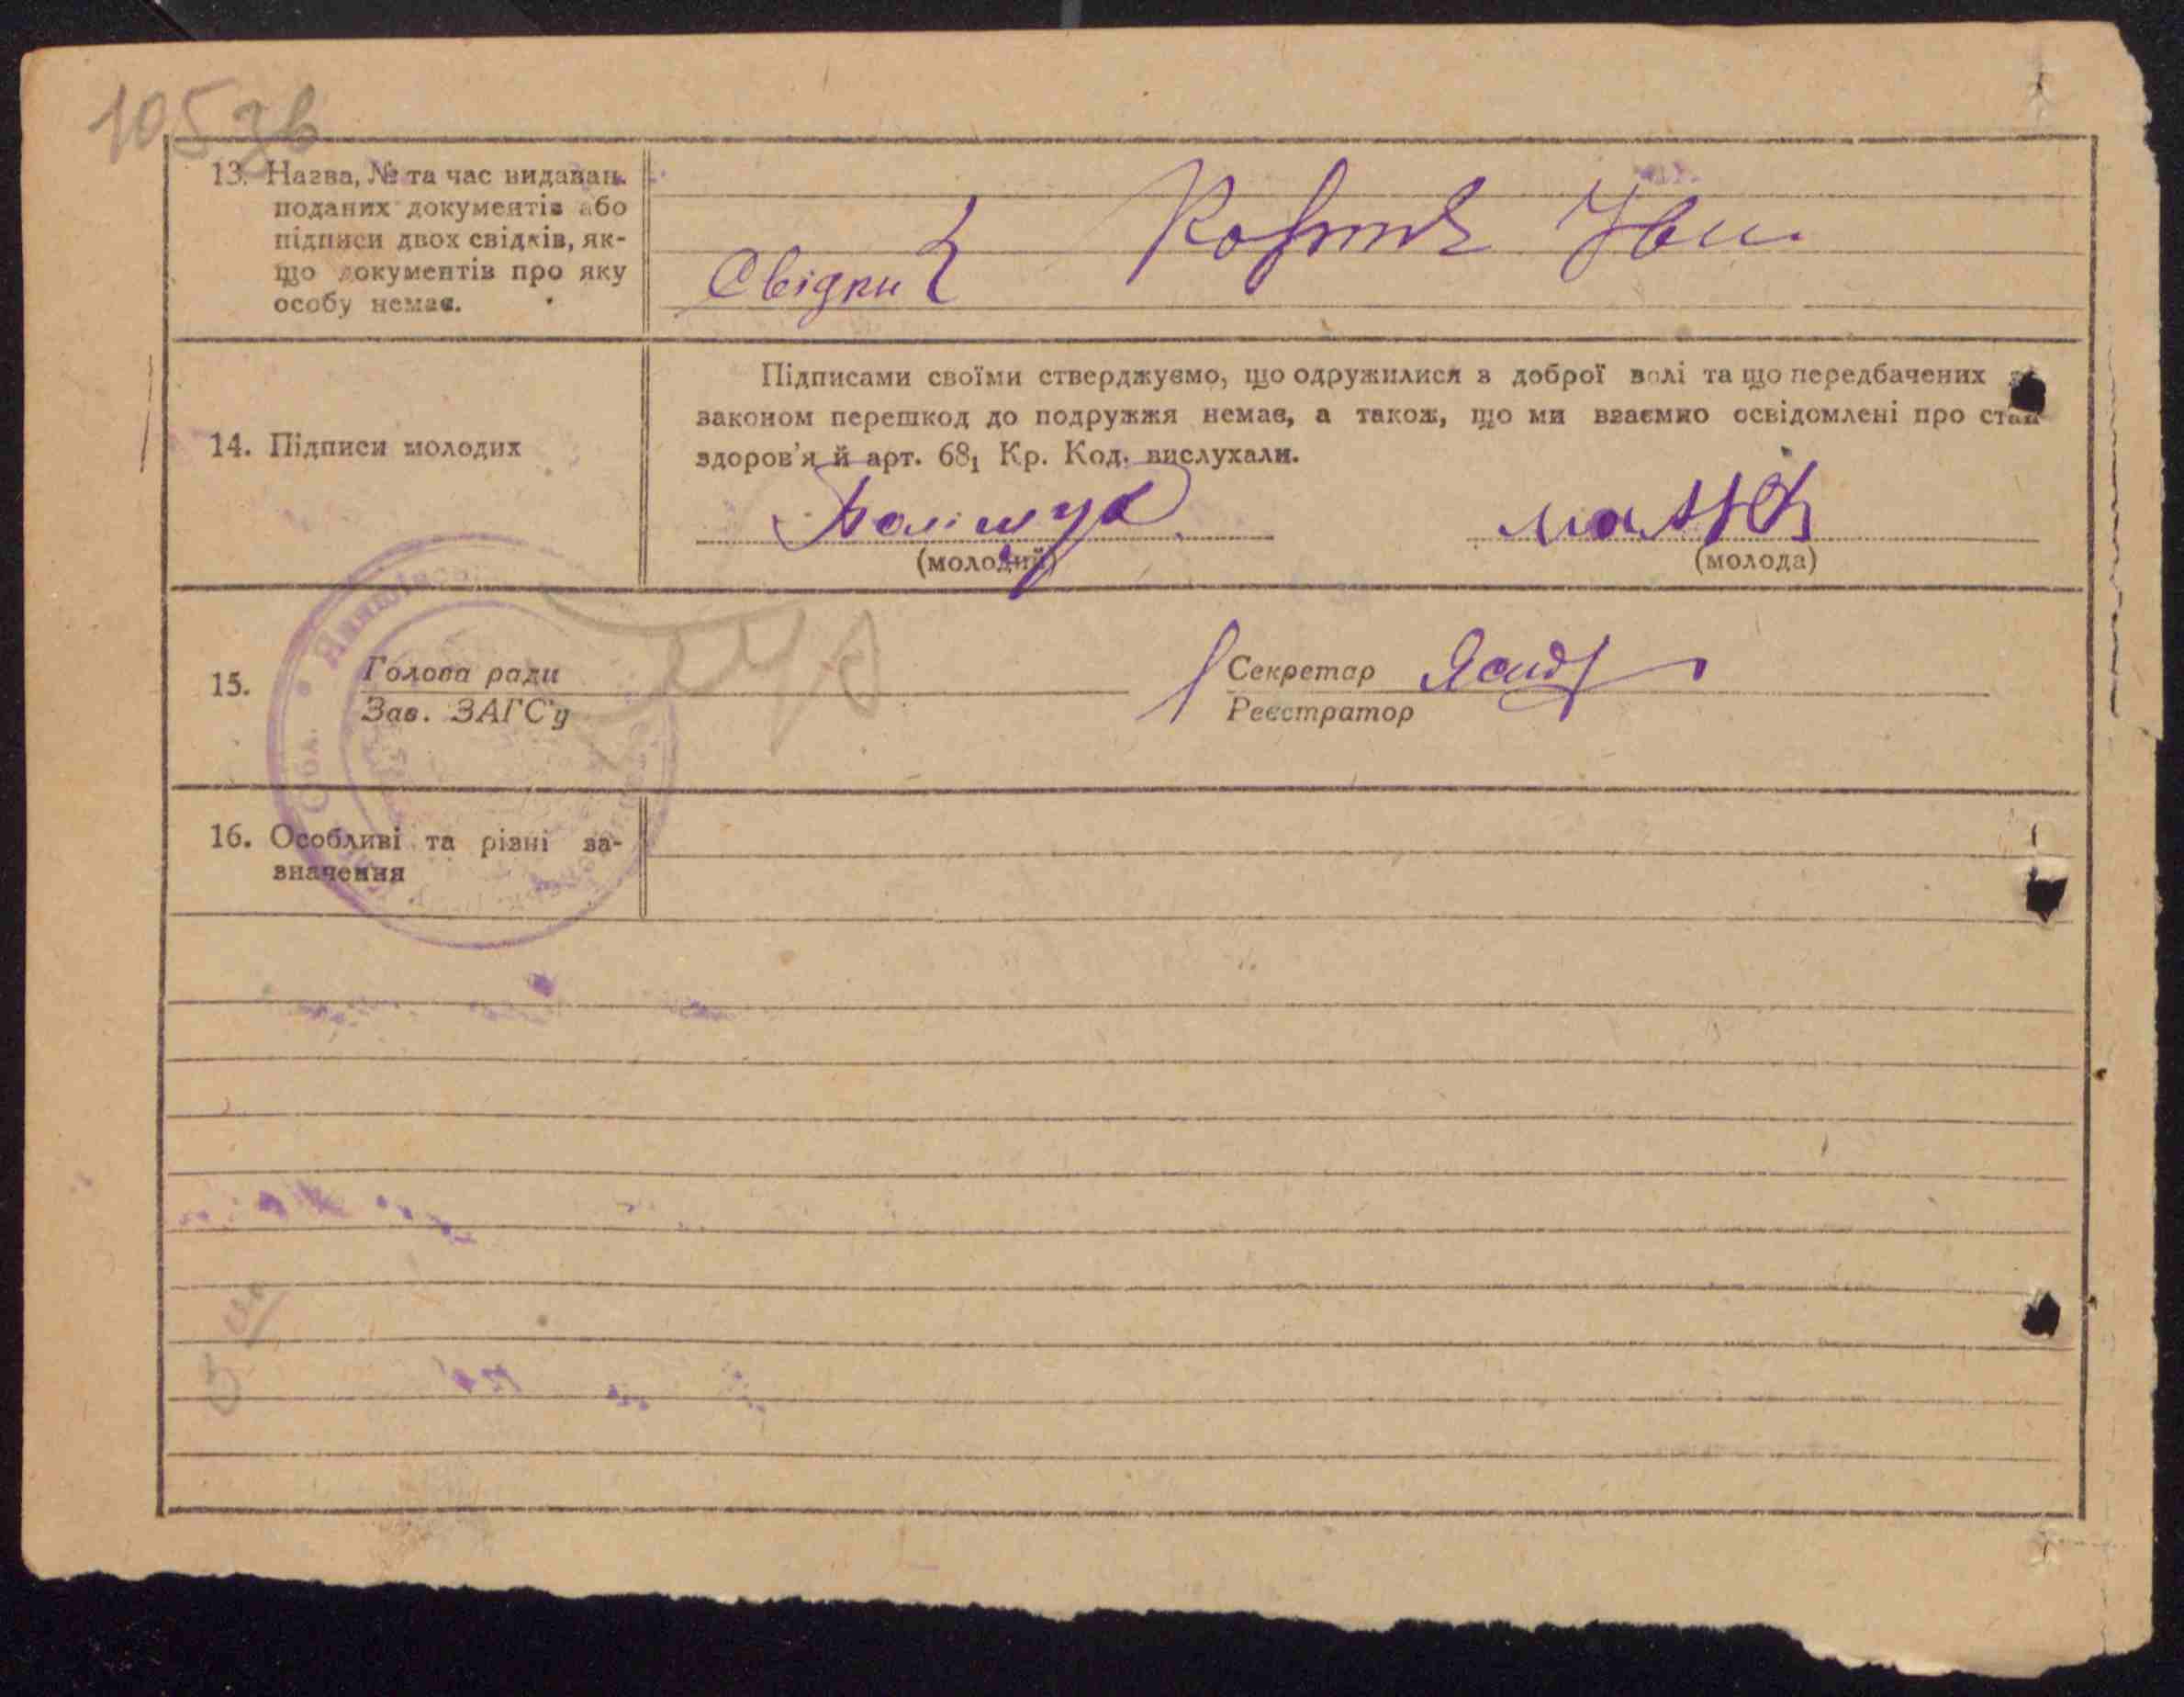 105 зв
13. Назва, № та час видаван.
поданих документів або
підписи двох свідків, як-
що документів про яку
особу немає.
Свідки
14. Підписи молодих
Підписами своїми стверджуємо, що одружилися з доброї волі та що передбачених
законом перешкод до подружжя немає, а також, що ми взаємно освідомлені про стан
здоров'я й арт. 68₁ Кр. Код. вислухали.
(молодий)
(молода)
15.
Голова ради
Зав. ЗАГС'у
Секретар
Реєстратор
16. Особливі та різні за-
значення